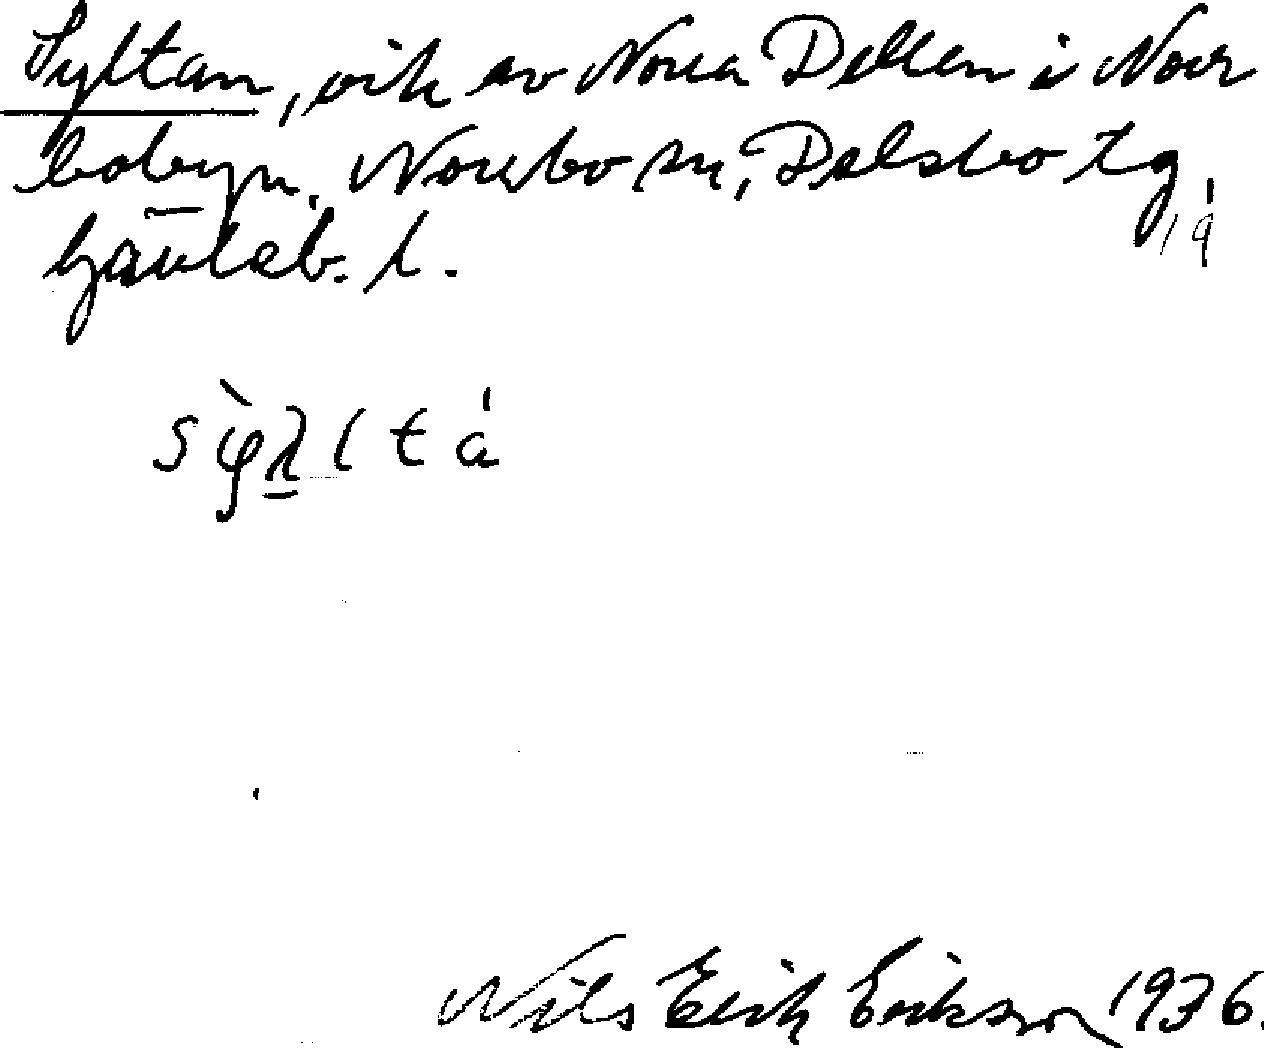 Syltan, vik av Norra Dellen i Norr
bobyn. Norrbo sn, Delsbo tg,
Gävleb. l.
Nils Erik Erikson 1936.